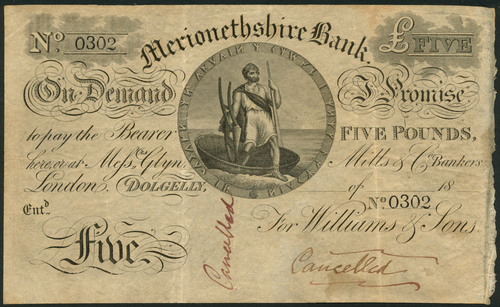 No. 0302 Merionethshire Bank. £FIVE
On Demand I Promise
to pay the Bearer FIVE POUNDS,
here, or at Messrs. Glyn, Mills & Co. Bankers
London. DOLGELLY, of 18
No. 0302
Entd.
For Williams & Sons.
Five
Cancelled
Cancelled